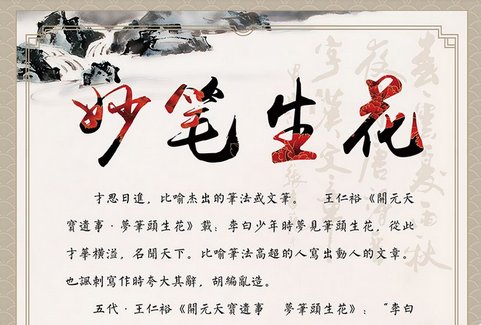 妙笔生花
才思日進，比喻杰出的筆法或文筆。　王仁裕《開元天
寶遺事·夢筆頭生花》載：李白少年時夢見筆頭生花，從此
才華橫溢，名聞天下。比喻筆法高超的人寫出動人的文章。
也諷刺寫作時夸大其辭，胡編亂造。
五代·王仁裕《開元天寶遺事　夢筆頭生花》：“李白